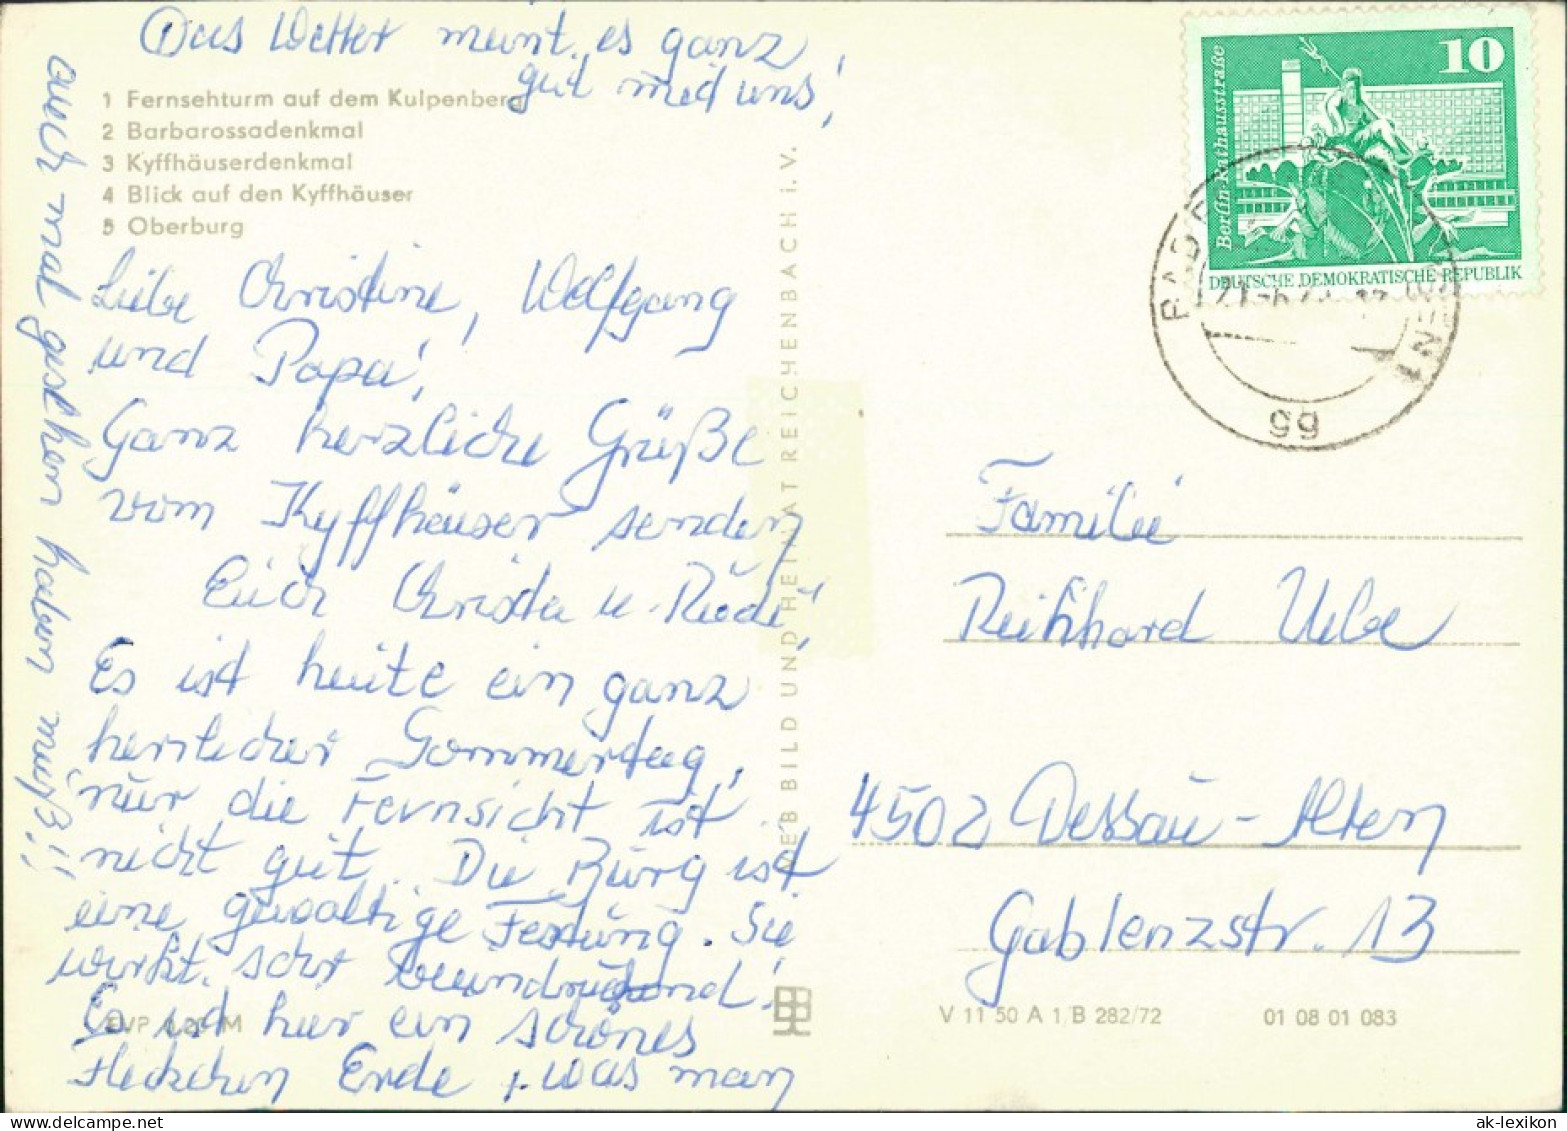 Das Wetter meint es ganz
gut mit uns!
1 Fernsehturm auf dem Kulpenberg
2 Barbarossadenkmal
3 Kyffhäuserdenkmal
4 Blick auf den Kyffhäuser
5 Oberburg
Liebe Christine, Wolfgang
und Papa!
Ganz herzliche Grüße
vom Kyffhäuser senden
Euch Christa u. Rudi!
Es ist heute ein ganz
herrlicher Sommertag,
nur die Fernsicht ist
nicht gut. Die Burg ist
eine gewaltige Festung. Sie
wirkt sehr beeindruckend!
Es ist hier ein schönes
Fleckchen Erde, was man
auch mal gesehen haben muß!!
EVP 0,20 M
VEB BILD UND HEIMAT REICHENBACH i. V.
10
Berlin-Rathausstraße
DEUTSCHE DEMOKRATISCHE REPUBLIK
gg
Familie
Reinhard Uebe
4502 Dessau-Alten
Gablenzstr. 13
V 11 50 A 1 B 282/72
01 08 01 083
ak-lexikon